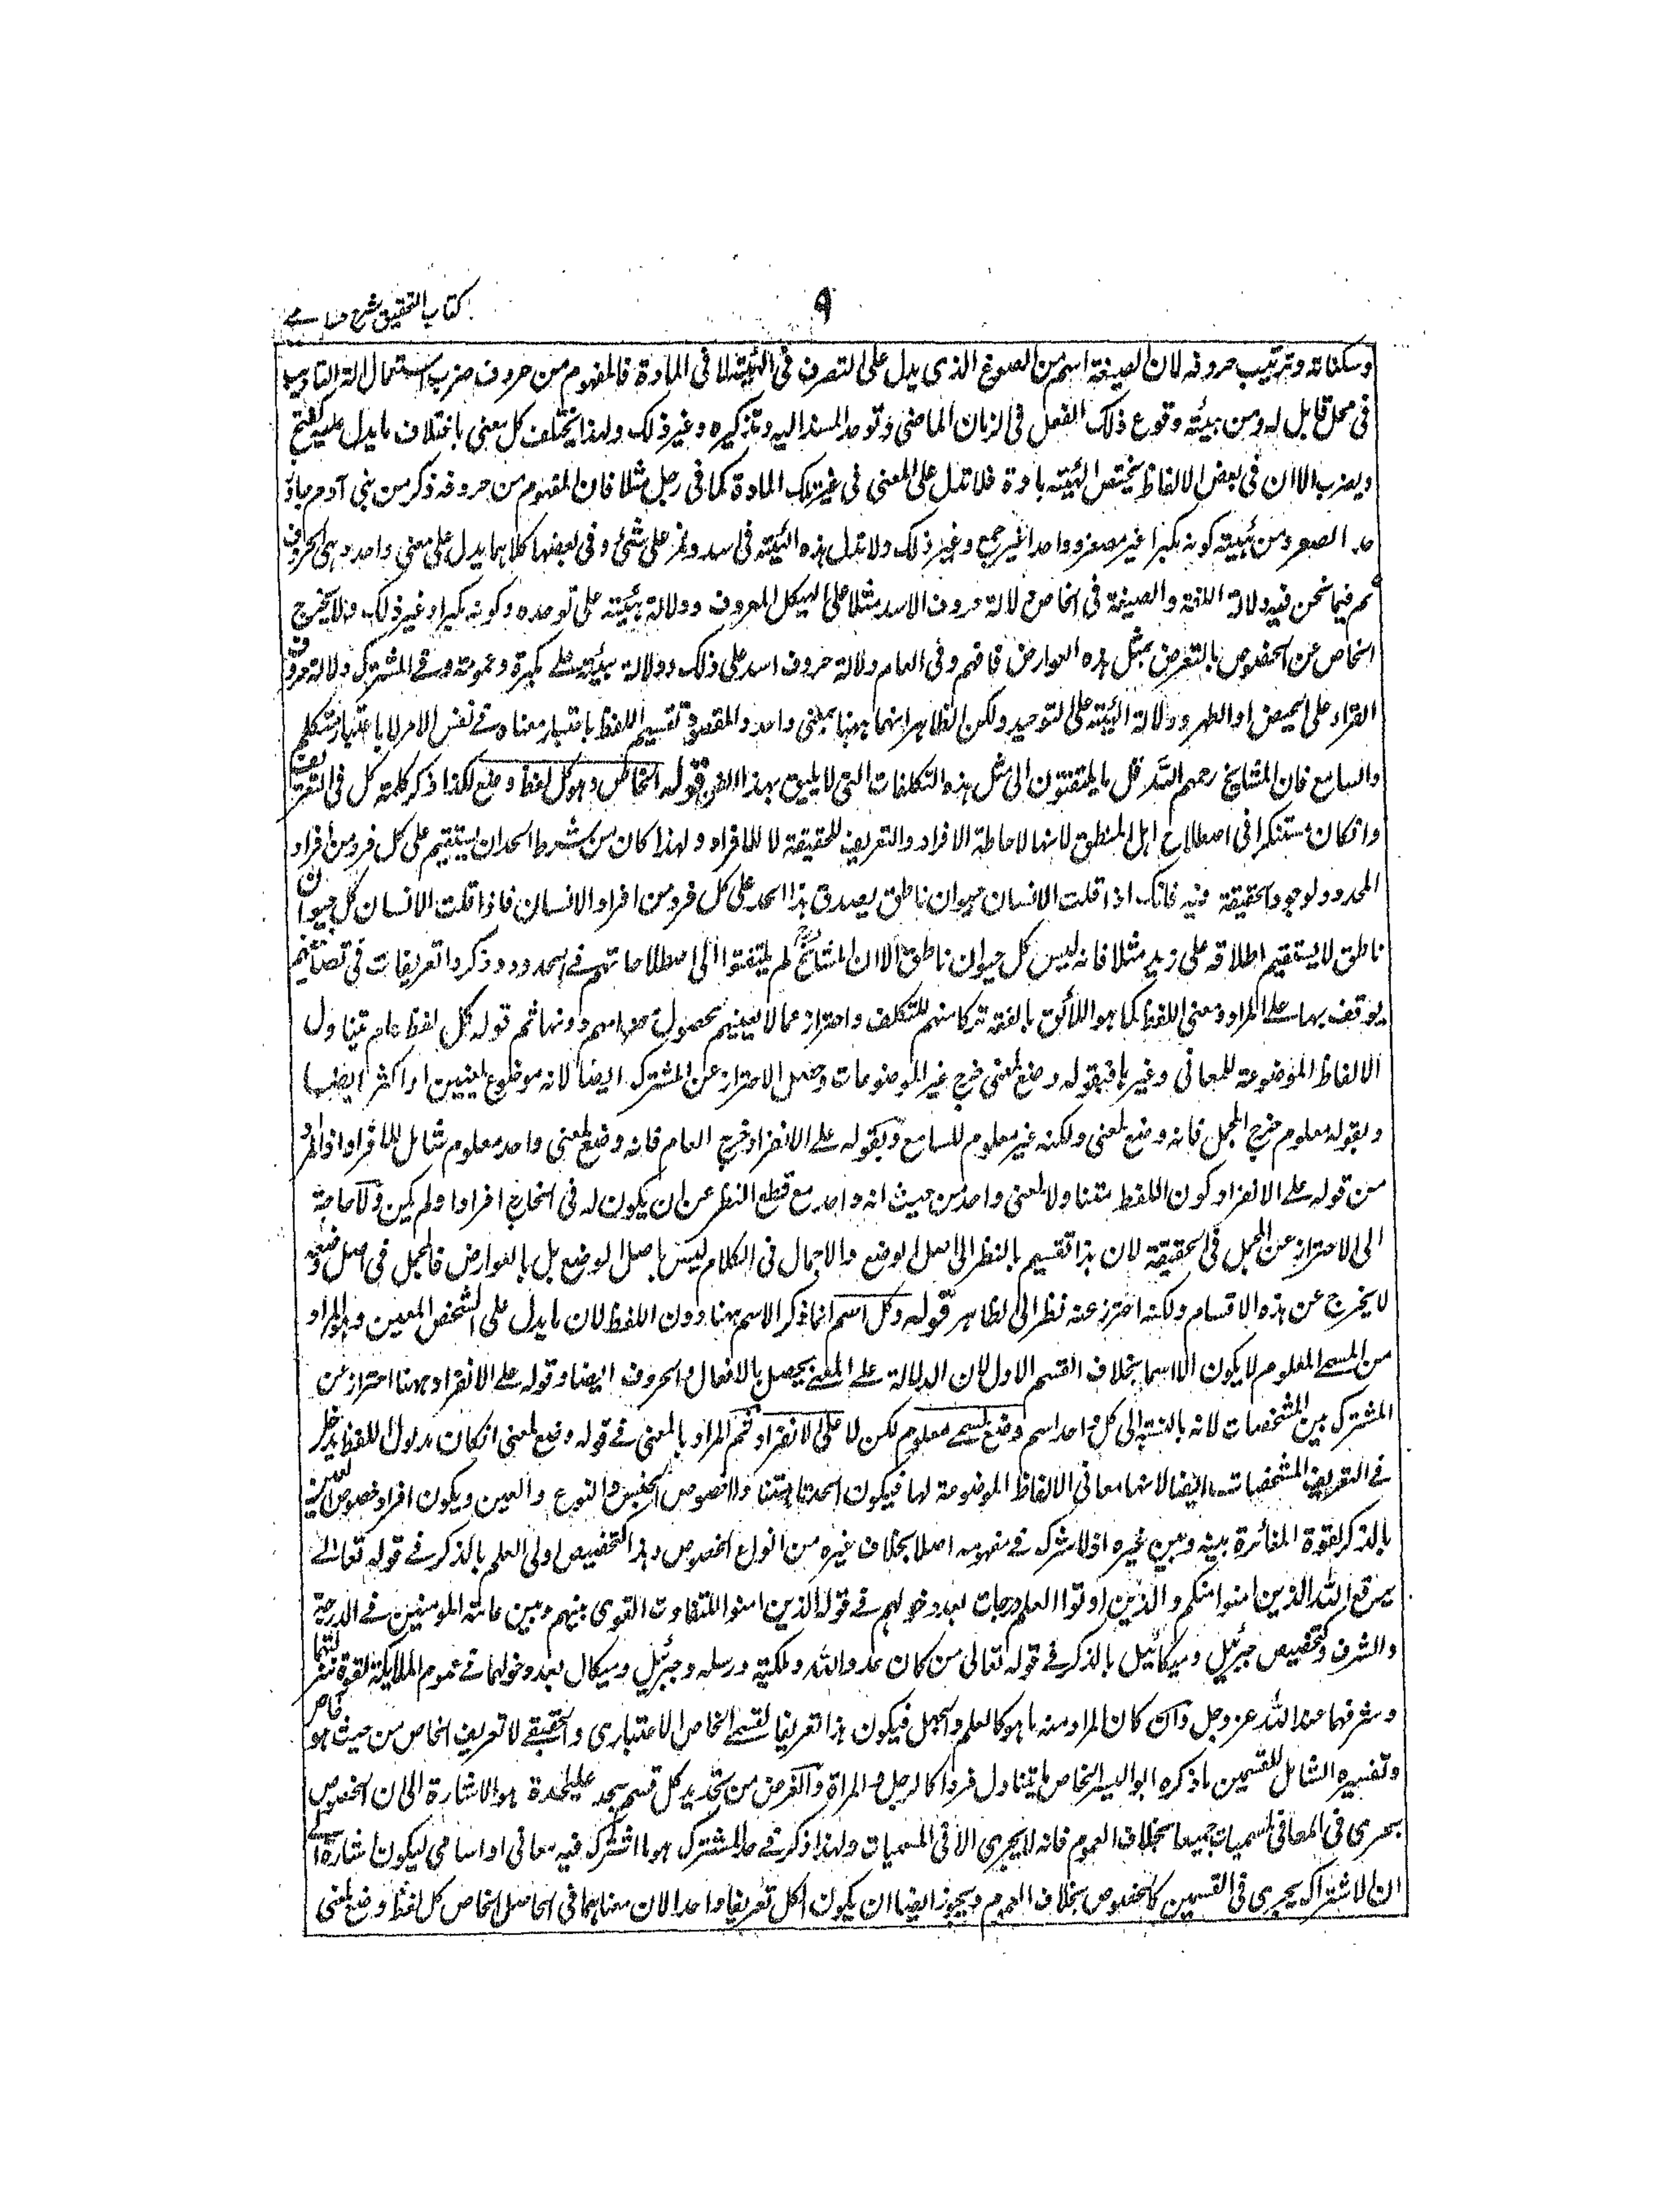 كتاب التحقيق شرح حسامے
٩
وسكناته وترتيب حروفه لان الصيغة اسم من الصوغ الذى يدل على التصرف فى الهيئة لا فى المادة فالمفهوم من حروف ضرب استعمال الة التاديب
فى محل قابل له ومن هيئته وقوع ذلك الفعل فى الزمان الماضى وتوحد المسند اليه وتذكيره وغير ذلك ولهذا يختلف كل معنى باختلاف ما يدل عليه كفتح
ويضرب الا ان فى بعض الالفاظ يختص الهيئة بمادة فلا تدل على المعنى فى غير تلك المادة كما فى رجل مثلا فان المفهوم من حروفه ذكر من بنى آدم جاوز
حد الصغر ومن هيئته كونه مكبرا غير مصغر وواحدا غير جمع وغير ذلك ولا تدل هذه الهيئة فى اسد ونمر على شئ وفى بعضها كلاهما يدل على معنى واحد وهى الحروف
ثم فيما نحن فيه دلالة اللغة والصيغة فى الخاص دلالة حروف الاسد مثلا على الهيكل المعروف ودلالة هيئته على توحده وكونه مكبرا وغير ذلك ولا يخرج
الخاص عن الخصوص بالتعرض بمثل هذه العوارض فافهم وفى العام دلالة حروف اسد على ذلك ودلالة هيئته على كثرة وعمومه وفے المشترك دلالة حروف
القرء على الحيض او الطهر ودلالة الهيئة على التوحيد ولكن الظاهر انهما ههنا بمعنى واحد والمقصود تقسيم اللفظ باعتبار معناه فے نفس الامر لا باعتبار المتكلم
والسامع فان المشايخ رحمهم الله قل ما يلتفتون الى مثل هذه التكلفات التى لا يليق بهذا الفن قوله الخاص وهو كل لفظ وضع لكذا ذكر كلمة كل فى التعريف
وانكان مستنكرا فى اصطلاح اهل المنطق لانها لاحاطة الافراد والتعريف للحقيقة لا للافراد ولهذا كان من شرط الحد ان يستقيم على كل فرد من افراد
المحدود لوجود الحقيقة فيه فانك اذا قلت الانسان حيوان ناطق يصدق هذا الحد على كل فرد من افراد الانسان فاذا قلت الانسان كل حيوان
ناطق لا يستقيم اطلاقه على زيد مثلا فانه ليس كل حيوان ناطق الا ان المشايخ لم يلتفتوا الى اصطلاحاتهم فے الحدود وذكروا تعريفات فى تصانيفهم
يوقف بها على المراد ومعنى اللفظ كما هو اللائق بالفقه تركا منهم للتكلف واحترازا عما لا يعنيهم لحصول مرامهم دونها ثم قوله كل لفظ عام تيناول
الالفاظ الموضوعة للمعانى وغيرها فبقوله وضع لمعنى خرج غير الموضوعات وحصل الاحتراز عن المشترك ايضا لانه موضوع لمعنيين او اكثر ايضا
وبقوله معلوم خرج المجمل فانه وضع لمعنى ولكنه غير معلوم للسامع وبقوله على الانفراد خرج العام فانه وضع لمعنى واحد معلوم شامل للافراد اذ المراد
من قوله على الانفراد كون اللفظ متناولا لمعنى واحد من حيث انه واحد مع قطع النظر عن ان يكون له فى الخارج افراد او لم يكن ولا حاجة
الى الاحتراز عن المجمل فى الحقيقة لان هذا تقسيم بالنظر الى اصل الوضع والاجمال فى الكلام ليس باصل الوضع بل بالعوارض فالمجمل فى اصل وضعه
لا يخرج عن هذه الاقسام ولكنه احترز عنه نظرا الى الظاهر قوله وكل اسم انما ذكر الاسم ههنا دون اللفظ لان ما يدل على الشخص المعين وهو المراد
من المسمے المعلوم لا يكون الا اسما بخلاف القسم الاول لان الدلالة علے المعنے يحصل بالافعال والحروف ايضا وقوله على الانفراد ههنا احتراز عن
المشترك بين المشخصات لانه بالنسبة الى كل واحد اسم وضع لمسمے معلوم لكن لا على الانفراد ثم المراد بالمعنى فے قوله وضع لمعنى انكان مدلول اللفظ يدخل
فے التعريف المشخصات ايضا لانها معانى الالفاظ الموضوعة لها فيكون الحد متناولا خصوص الجنس والنوع والعين ويكون افراد خصوص العين
بالذكر لقوة المغائرة بينه وبين غيره اذ لا شرك فے مفهومه اصلا بخلاف غيره من انواع الخصوص وهذا كتخصيص اولى العلم بالذكر فے قوله تعالے
يرفع الله الذين امنوا منكم والذين اوتوا العلم درجات بعد دخولهم فے قوله الذين امنوا للتفاوت القوى بينهم وبين عامة المومنين فے الدرجة
والشرف وكتخصيص جبرئيل وميكائيل بالذكر فے قوله تعالى من كان عدوا لله وملئكته ورسله وجبرئيل وميكال بعد دخولهما فے عموم الملايكة لقوة منزلتهما
وشرفهما عند الله عز وجل وان كان المراد منه ما هو كالعلم والجهل فيكون هذا تعريفا لقسمے الخاص الاعتبارى والحقيقے لا تعريف الخاص من حيث هو خاص
وتفسيره الشامل للقسمين ما ذكره ابو اليسر الخاص ما يتناول فردا كالرجل والمراة والغرض من تحديد كل قسم بحد عليحدة هو الاشارة الى ان الخصوص
يجرى فى المعانى والمسميات جميعا بخلاف العموم فانه لا يجرى الا فى المسميات ولهذا ذكر فے حد المشترك هو ما اشترك فيه معانى او اسامى ليكون اشارة الے
ان الاشتراك يجرى فى القسمين كالخصوص بخلاف العموم ويجوز ايضا ان يكون الكل تعريفا واحدا لان معناهما فى الحاصل الخاص كل لفظ وضع لمعنى